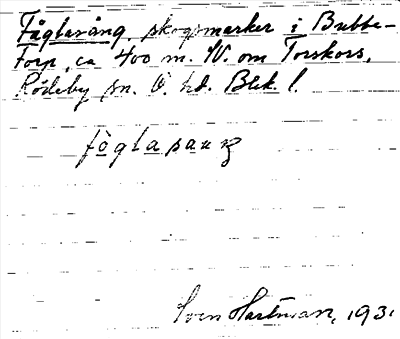 Fåglasång, skogsmarker i Bubbe-
torp, ca 400 m. N. om Torskors,
Rödeby sn. Ö. hd. Blek. l.
fògLasaŋ
Sven Hartman, 1931